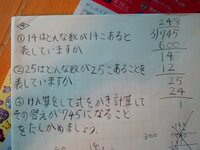 ①14はどんな数が14こあると
表していますか
②25はどんな数が25こあることを
表していますか。
③けん算として式をかき計算して
その答えが745になること
をたしかめましょう。
248
3)745
600
14
12
25
24
1
300